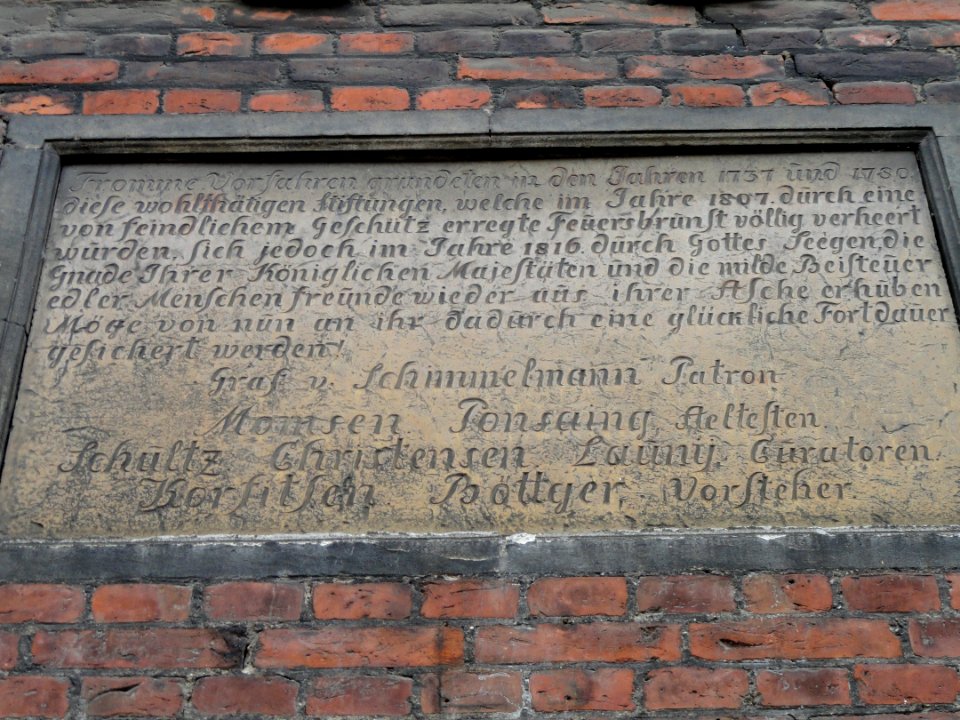 Fromme Vorfahren gründeten in den Jahren 1737 und 1780.
diese wohlthätigen Stiftungen, welche im Jahre 1807. durch eine
von feindlichem Geschütz erregte Feuersbrunst völlig verheert
wurden, sich jedoch im Jahre 1816. durch Gottes Seegen, die
Gnade Ihrer Königlichen Majestäten und die milde Beisteuer
edler Menschenfreunde wieder aus ihrer Asche erhuben
Möge von nun an ihr dadurch eine glückliche Fortdauer
gesichert werden!
Graf v. Schimmelmann Patron
Momsen Ponsaing Aeltesten.
Schultz Christensen Launij. Curatoren.
Korsitsen Böttger, Vorsteher.